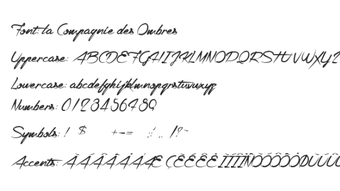 Font la Compagnie des Ombres
Uppercase: ABCDEFGHIJKLMNOPQRSTUVWXYZ
Lowercase: abcdefghijklmnopqrstuvwxyz
Numbers: 0123456789
Symbols: ! $ +-= !?-
Accents: ÀÁÂÃÄÅÆ ÇÈÉÊË ÌÍÎÏÑÒÓÔÕÖÙÚÛÜ